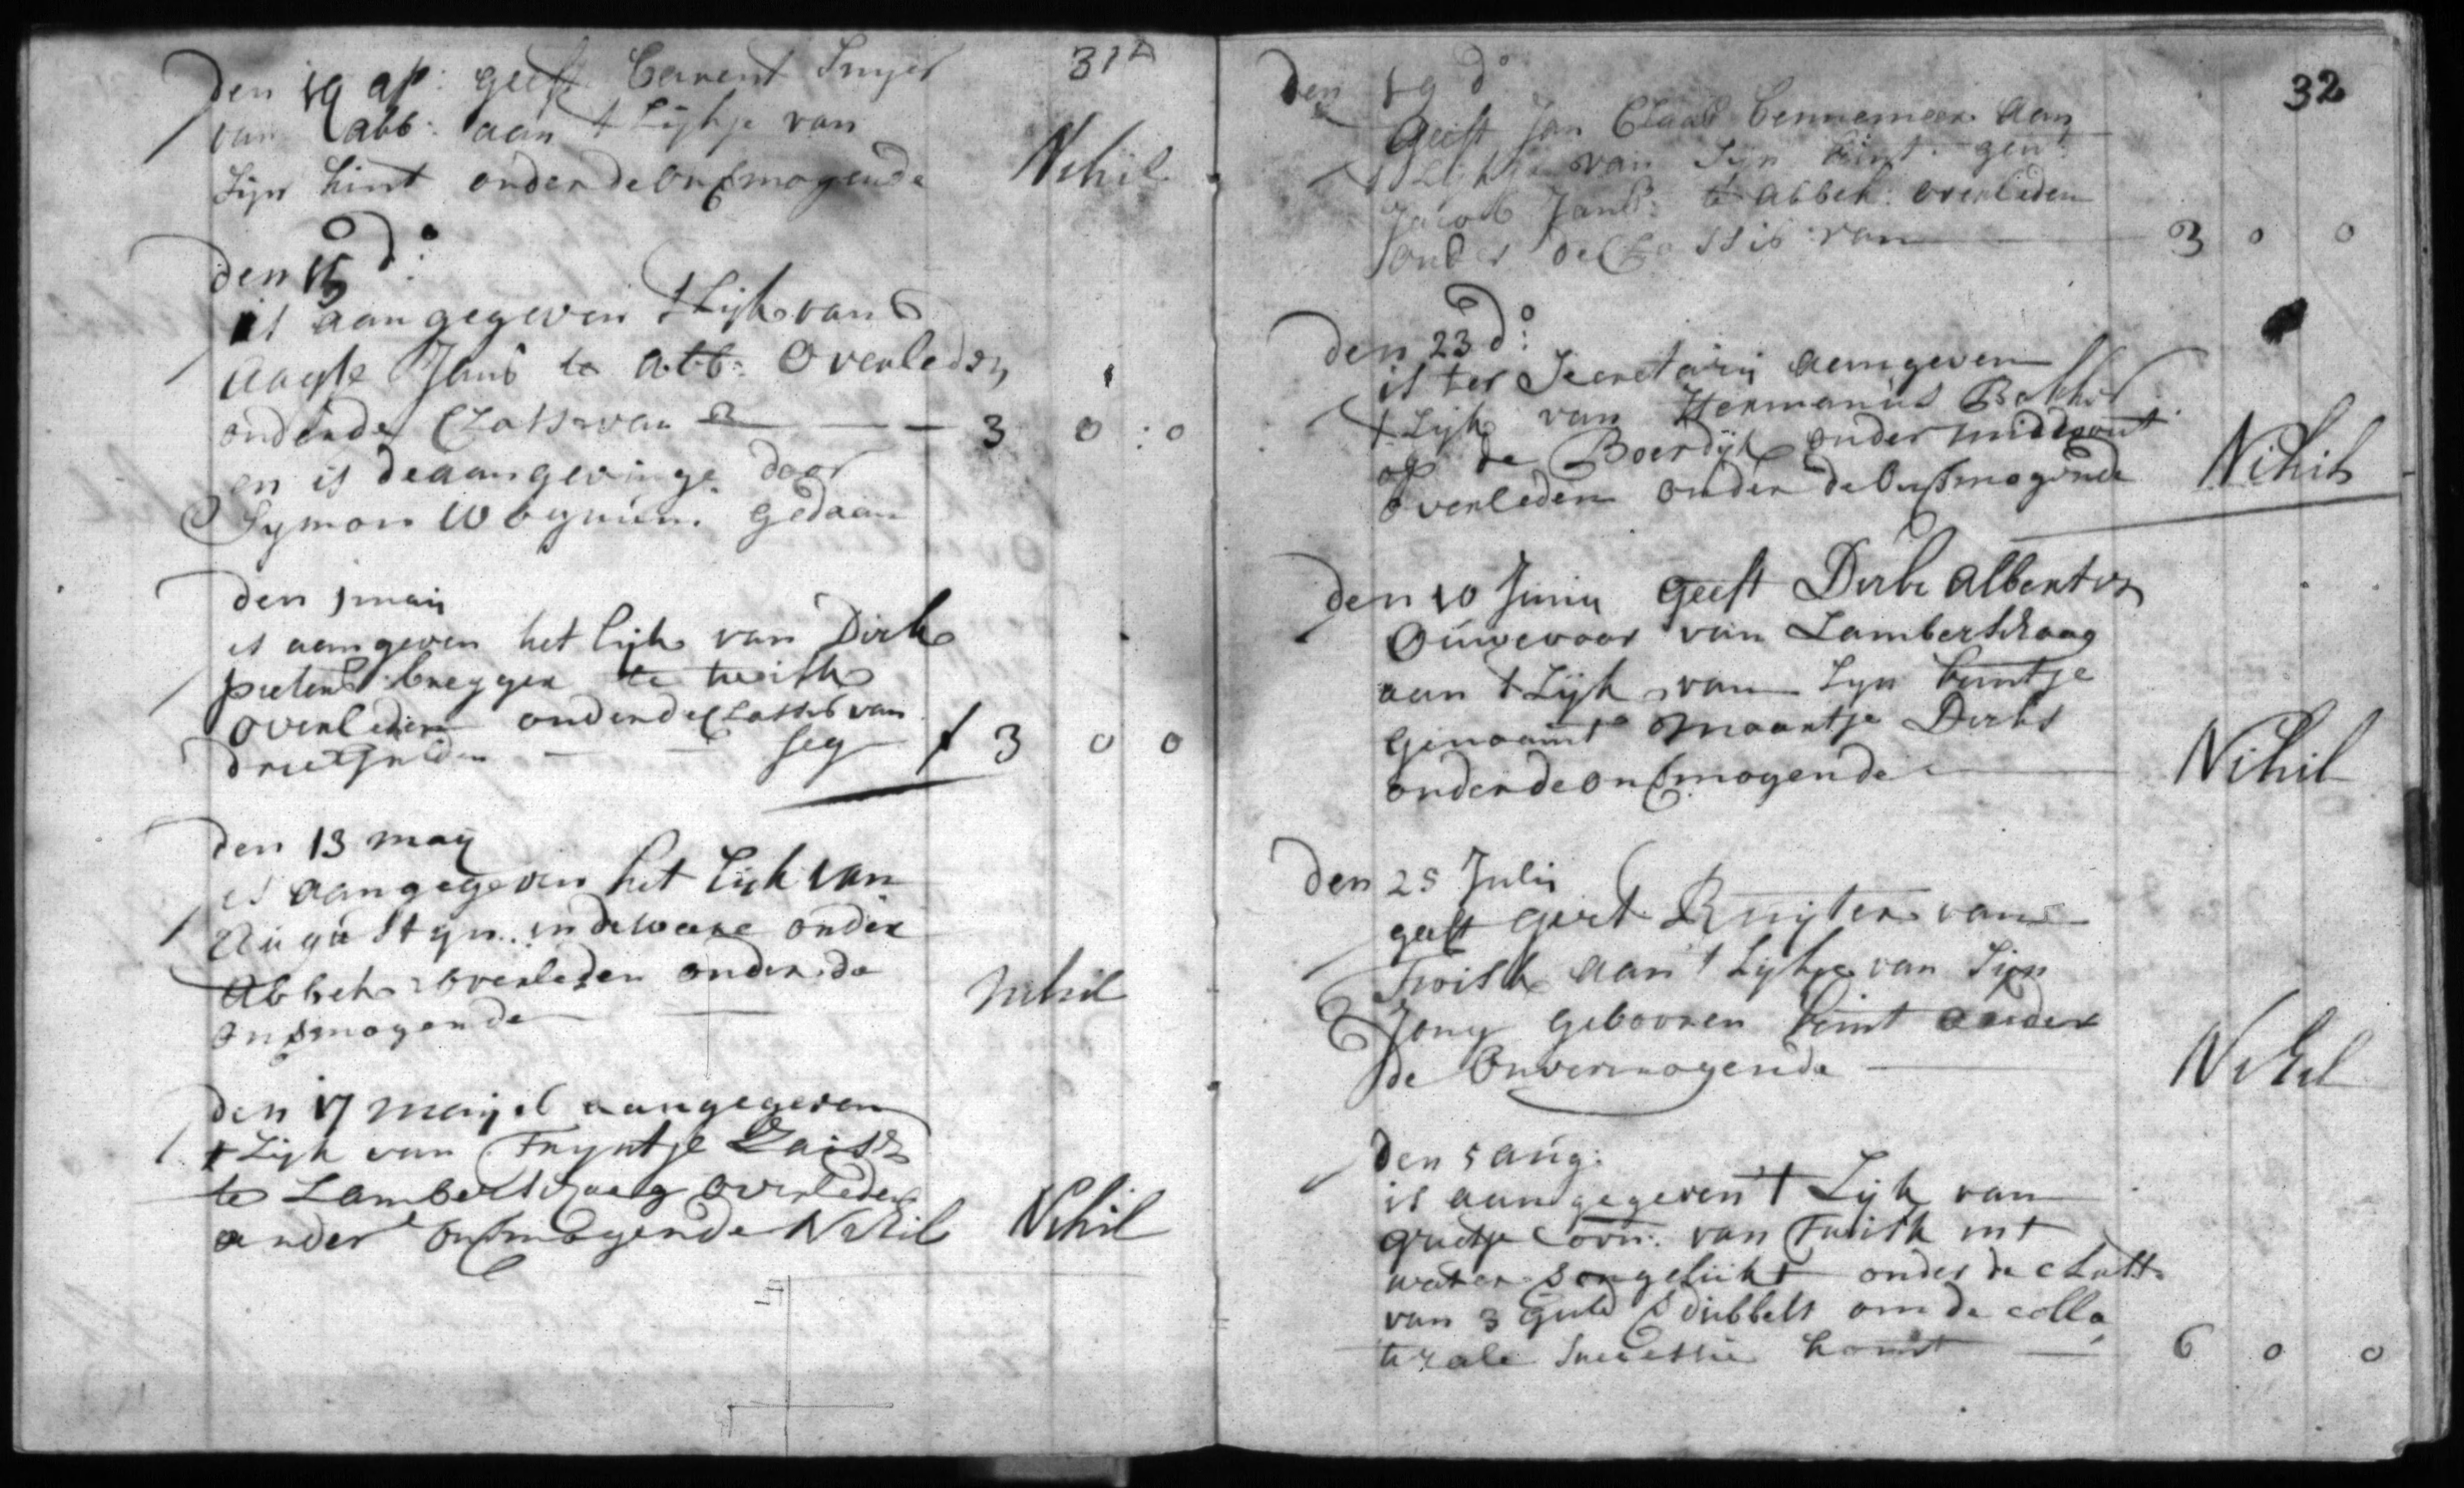 31A
den 19 ap: geeft Barent
van abb: aan t Lijkje van
Sijn kint onder de onsmogende Nihil
den 15 do:
is aangegeven t Lijk van
Aagte Jans te abb: Overleden
onder de Class van 3 — — 3 0 : 0
en is de aangevinge door
Symon gedaan
den 1 maij
is aangeven het lijk van Dirk
pieters bregger te twisk
overleden onder de Classis van
drie Gulden — — seg f 3 0 0
den 13 maij
is aangegeven het Lijk van
Augustyn in de weere onder
Abbek overleden onder de
onsmogende — nihil
den 17 maij is aangegeven
t Lijk van Tryntje
te Lambertschaag overleden
onder onsmogende Nihil Nihil
32
den 19 do
Geeft Jan Claas Bennemeer aan
t Lijkje van Sijn kint gen:
Jacob Jans: te abbek: overleden
onder de Classis van — 3 0 0
den 23 do:
is ter Secretarij aangeven
t Lijk van Hermanus Bakker
op de Boerdijk onder middwout
overleden onder de onsmogende Nihil
den 10 Junij geeft Dirk Alberts
Ouwevaar van Lambertschaag
aan t Lijk van Syn kintje
Genaamt Maartje Dirks
onder de onsmogende — Nihil
den 25 Julij
geeft Gert Ruijter van
Twisk aan t Lijkje van Sijn
Jong gebooren kint onder
de Onvermogende — Nihil
den 5 aug:
is aangegeven 't Lijk van
grietje Corn: van Twisk int
water onder de Class
van 3 Guld dubbelt om de colla
terale Successie komt — 6 0 0